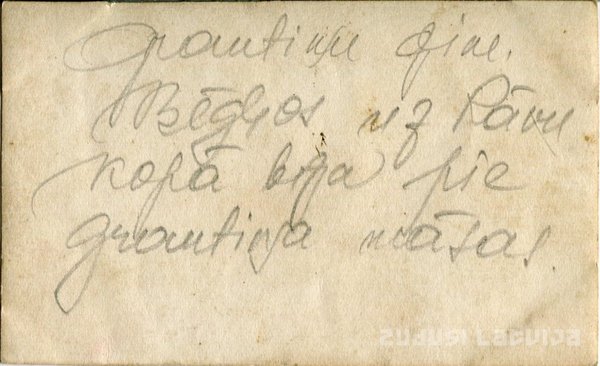 Grantiņu ģim.
Bēgļos uz
kopā bija pie
Grantiņa māsas.
ZUDUSI LATVIJA